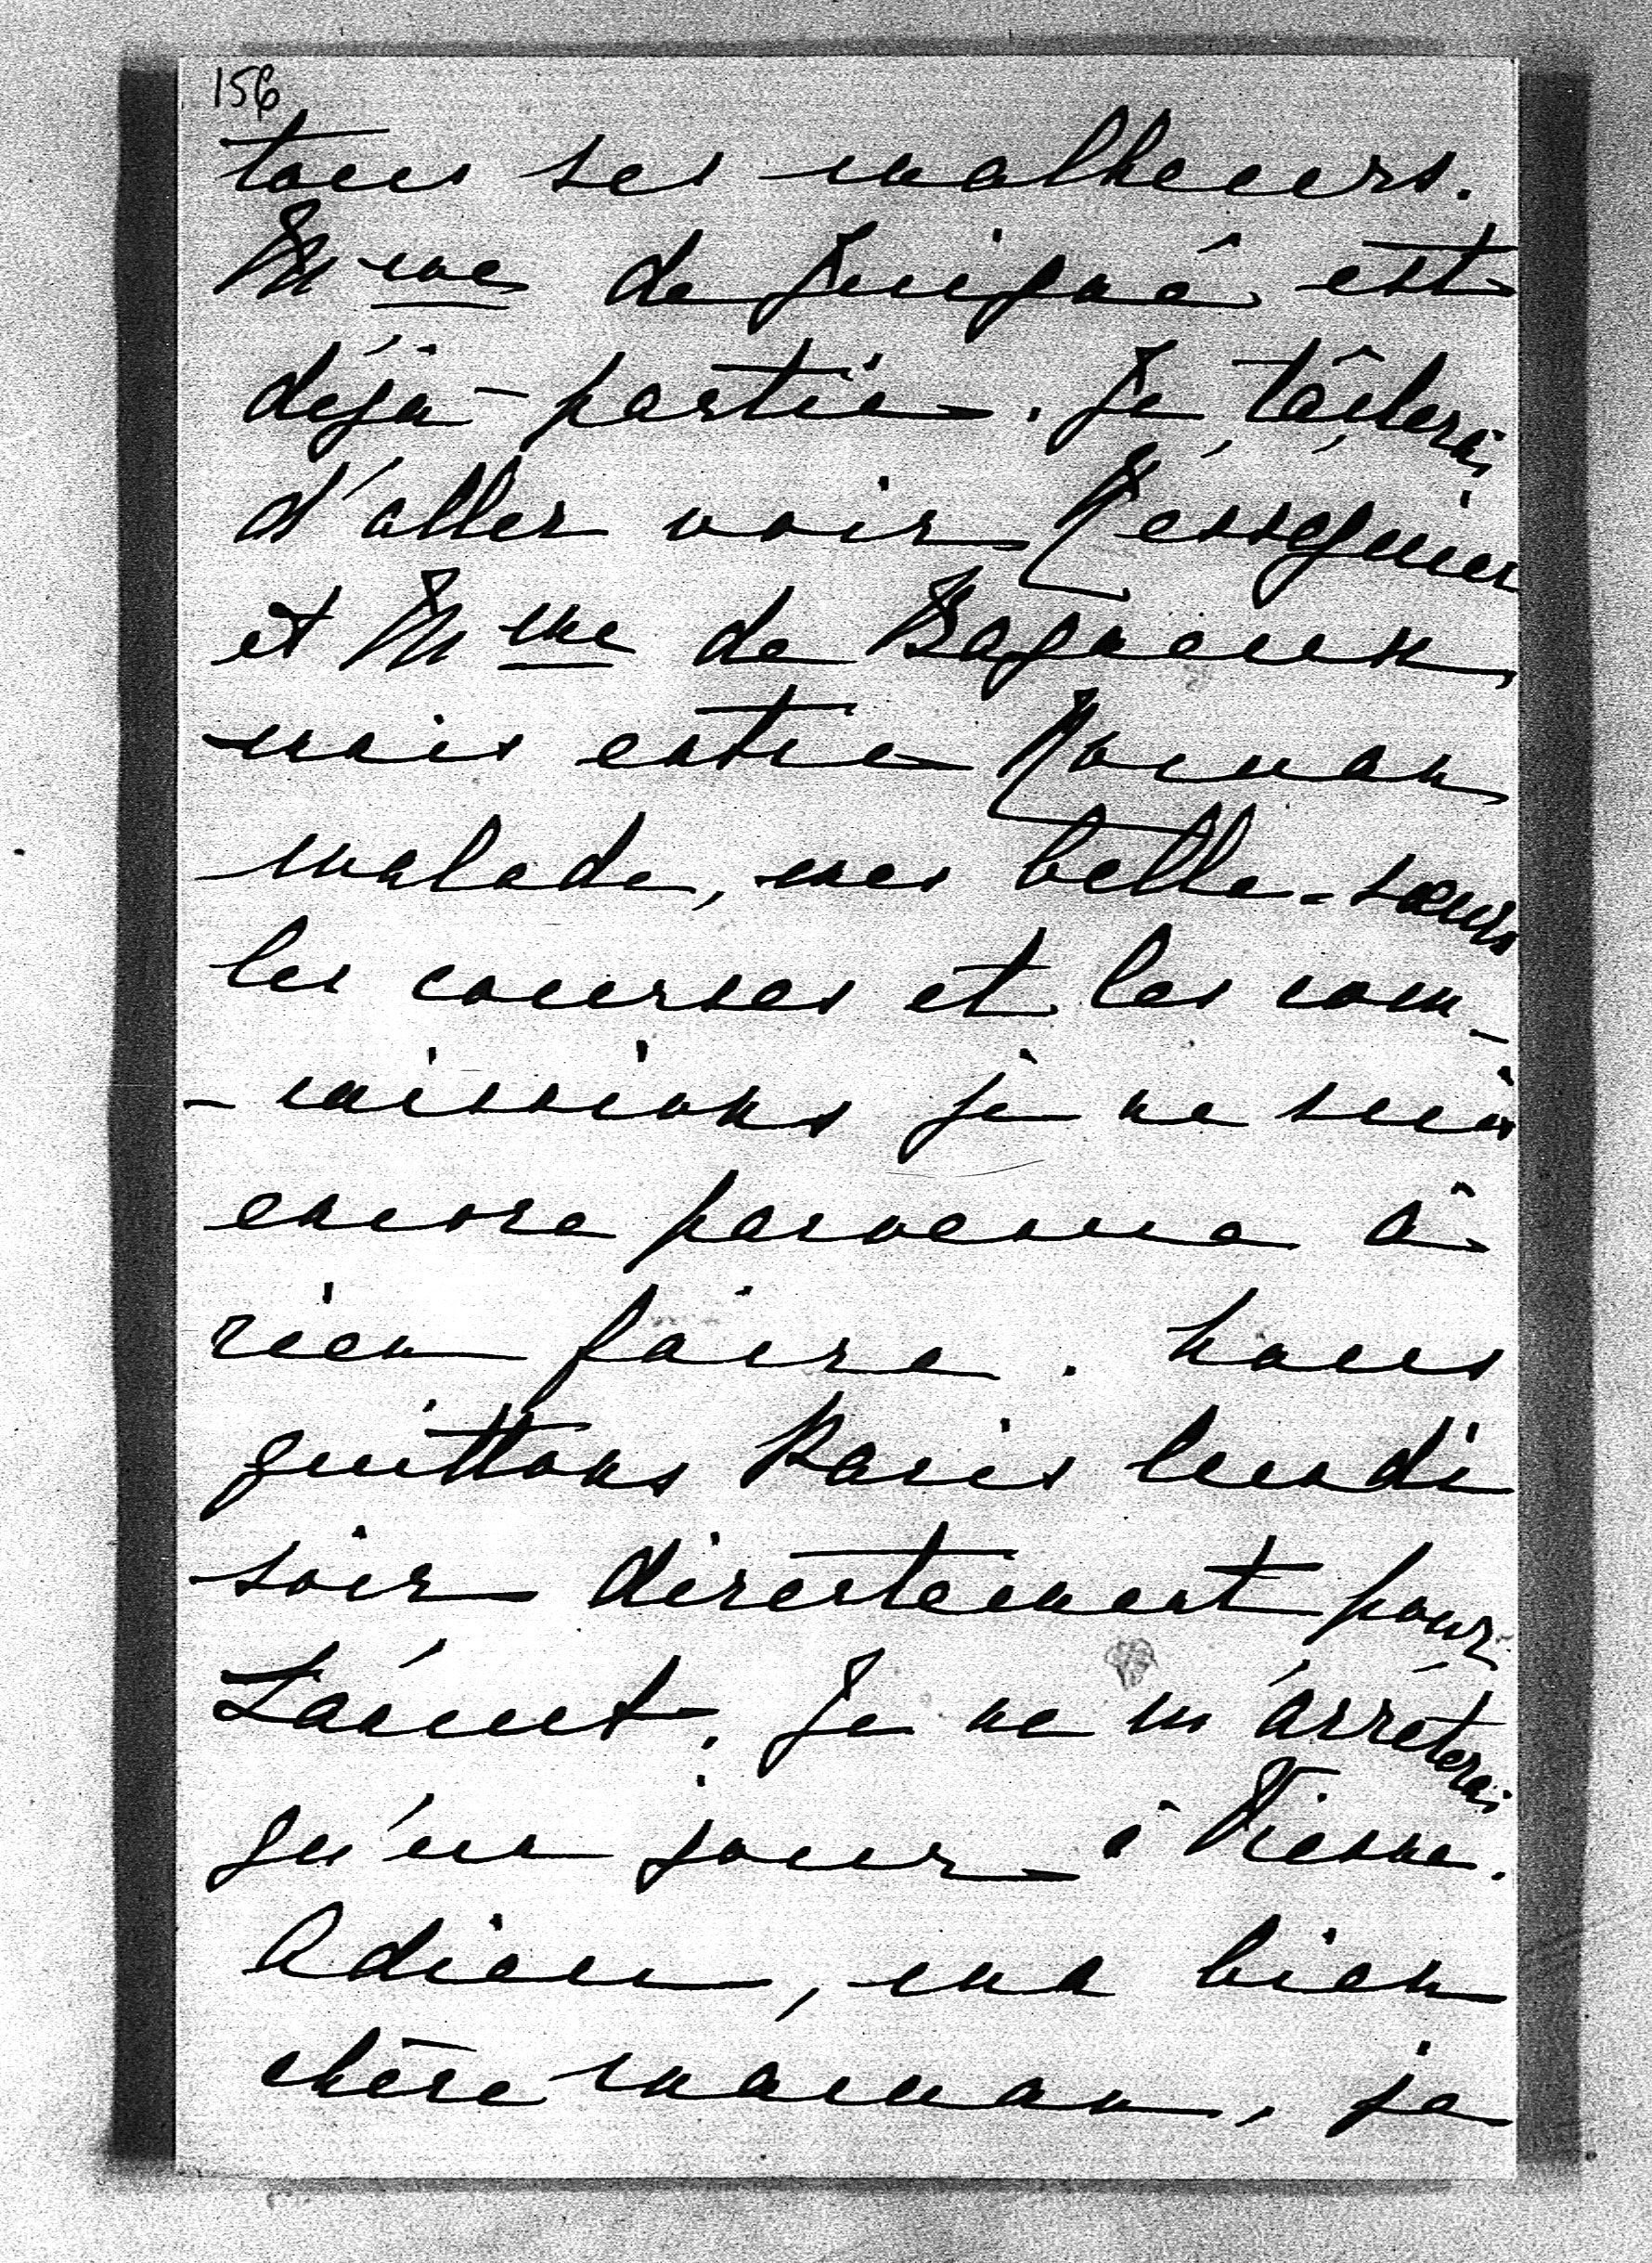 156
tous ses malheurs.
Mme de Juigné est
déjà partie. Je tâcherai
d'aller voir Rességuier
et Mme de Bagneux
mais entre Roman
malade, mes belle-sœurs
les courses et les com-
-missions je ne suis
encore parvenue à
rien faire. Nous
quittons Paris lundi
soir directement pour
Láncut. Je ne m'arrêterai
qu'un jour à Vienne.
Adieu, ma bien
chère maman, je